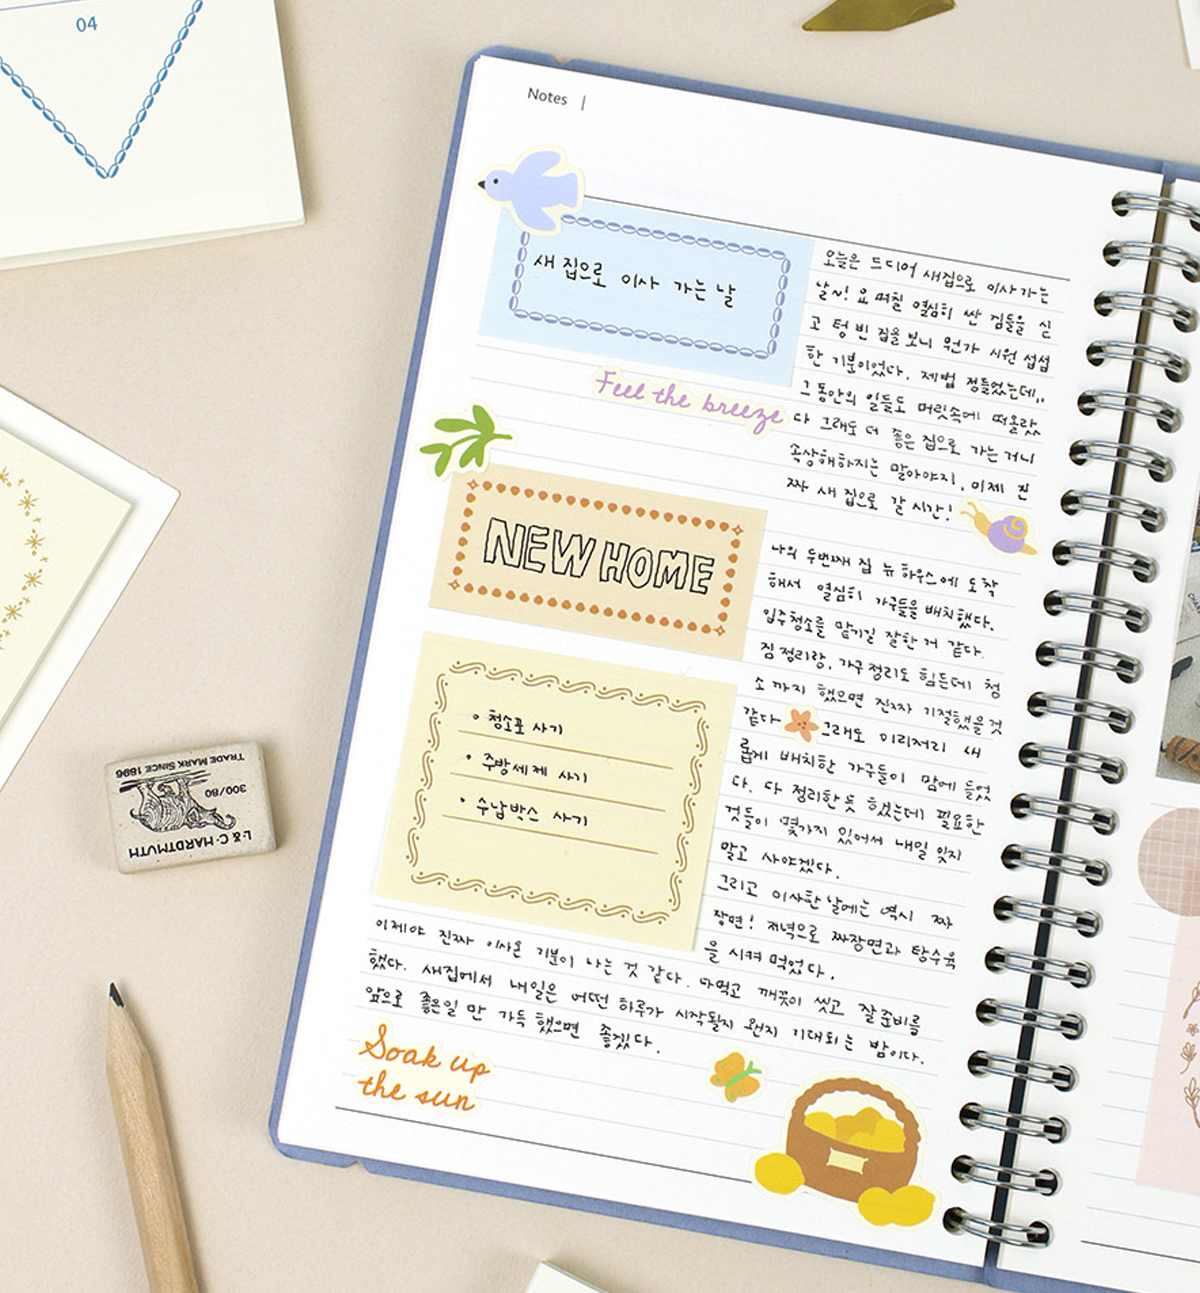 04
Notes |
새 집으로 이사 가는 날
오늘은 드디어 새집으로 이사가는
날~! 요 며칠 열심히 싼 짐들을 싣
고 텅 빈 집을 보니 뭔가 시원 섭섭
한 기분이었다. 제법 정들었는데..
그동안의 일들도 머릿속에 떠올랐
다 그래도 더 좋은 집으로 가는거니
속상해하지는 말아야지, 이제 진
짜 새 집으로 갈 시간!
Feel the breeze
NEW HOME
나의 두번째 집 뉴 하우스에 도착
해서 열심히 가구들을 배치했다.
입주청소를 맡기길 잘한 거 같다.
짐 정리랑, 가구 정리도 힘든데 청
소 까지 했으면 진짜 기절했을것
같다 그래도 미리저리 새
롭게 배치한 가구들이 맘에 들었
다. 다 정리한듯 하겠는데 필요한
것들이 몇가지 있어서 내일 잊지
말고 사야겠다.
그리고 이사한 날에는 역시 짜
장면! 저녁으로 짜장면과 탕수육
을 시켜 먹었다.
청소포 사기
주방세제 사기
수납박스 사기
이제야 진짜 이사온 기분이 나는 것 같다. 다먹고 깨끗이 씻고 잘준비를
했다. 새집에서 내일은 어떤 하루가 시작될지 왠지 기대되는 밤이다.
앞으로 좋은일 만 가득 했으면 좋겠다.
Soak up
the sun
L&C·HARDTMUTH
300/80
TRADE MARK SINCE 1896